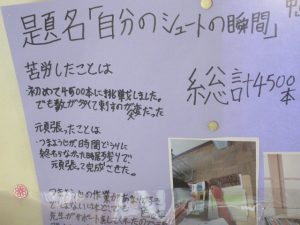 題名「自分のシュートの瞬間」
苦労したことは
初めて4500本に挑戦しました。
でも数が多くて刺すのが大変だった
総計4500
本
頑張ったことは
つまようじが時間どうりに
終わらなかった時居残りで
頑張って完成させた。
つまようじの作業が